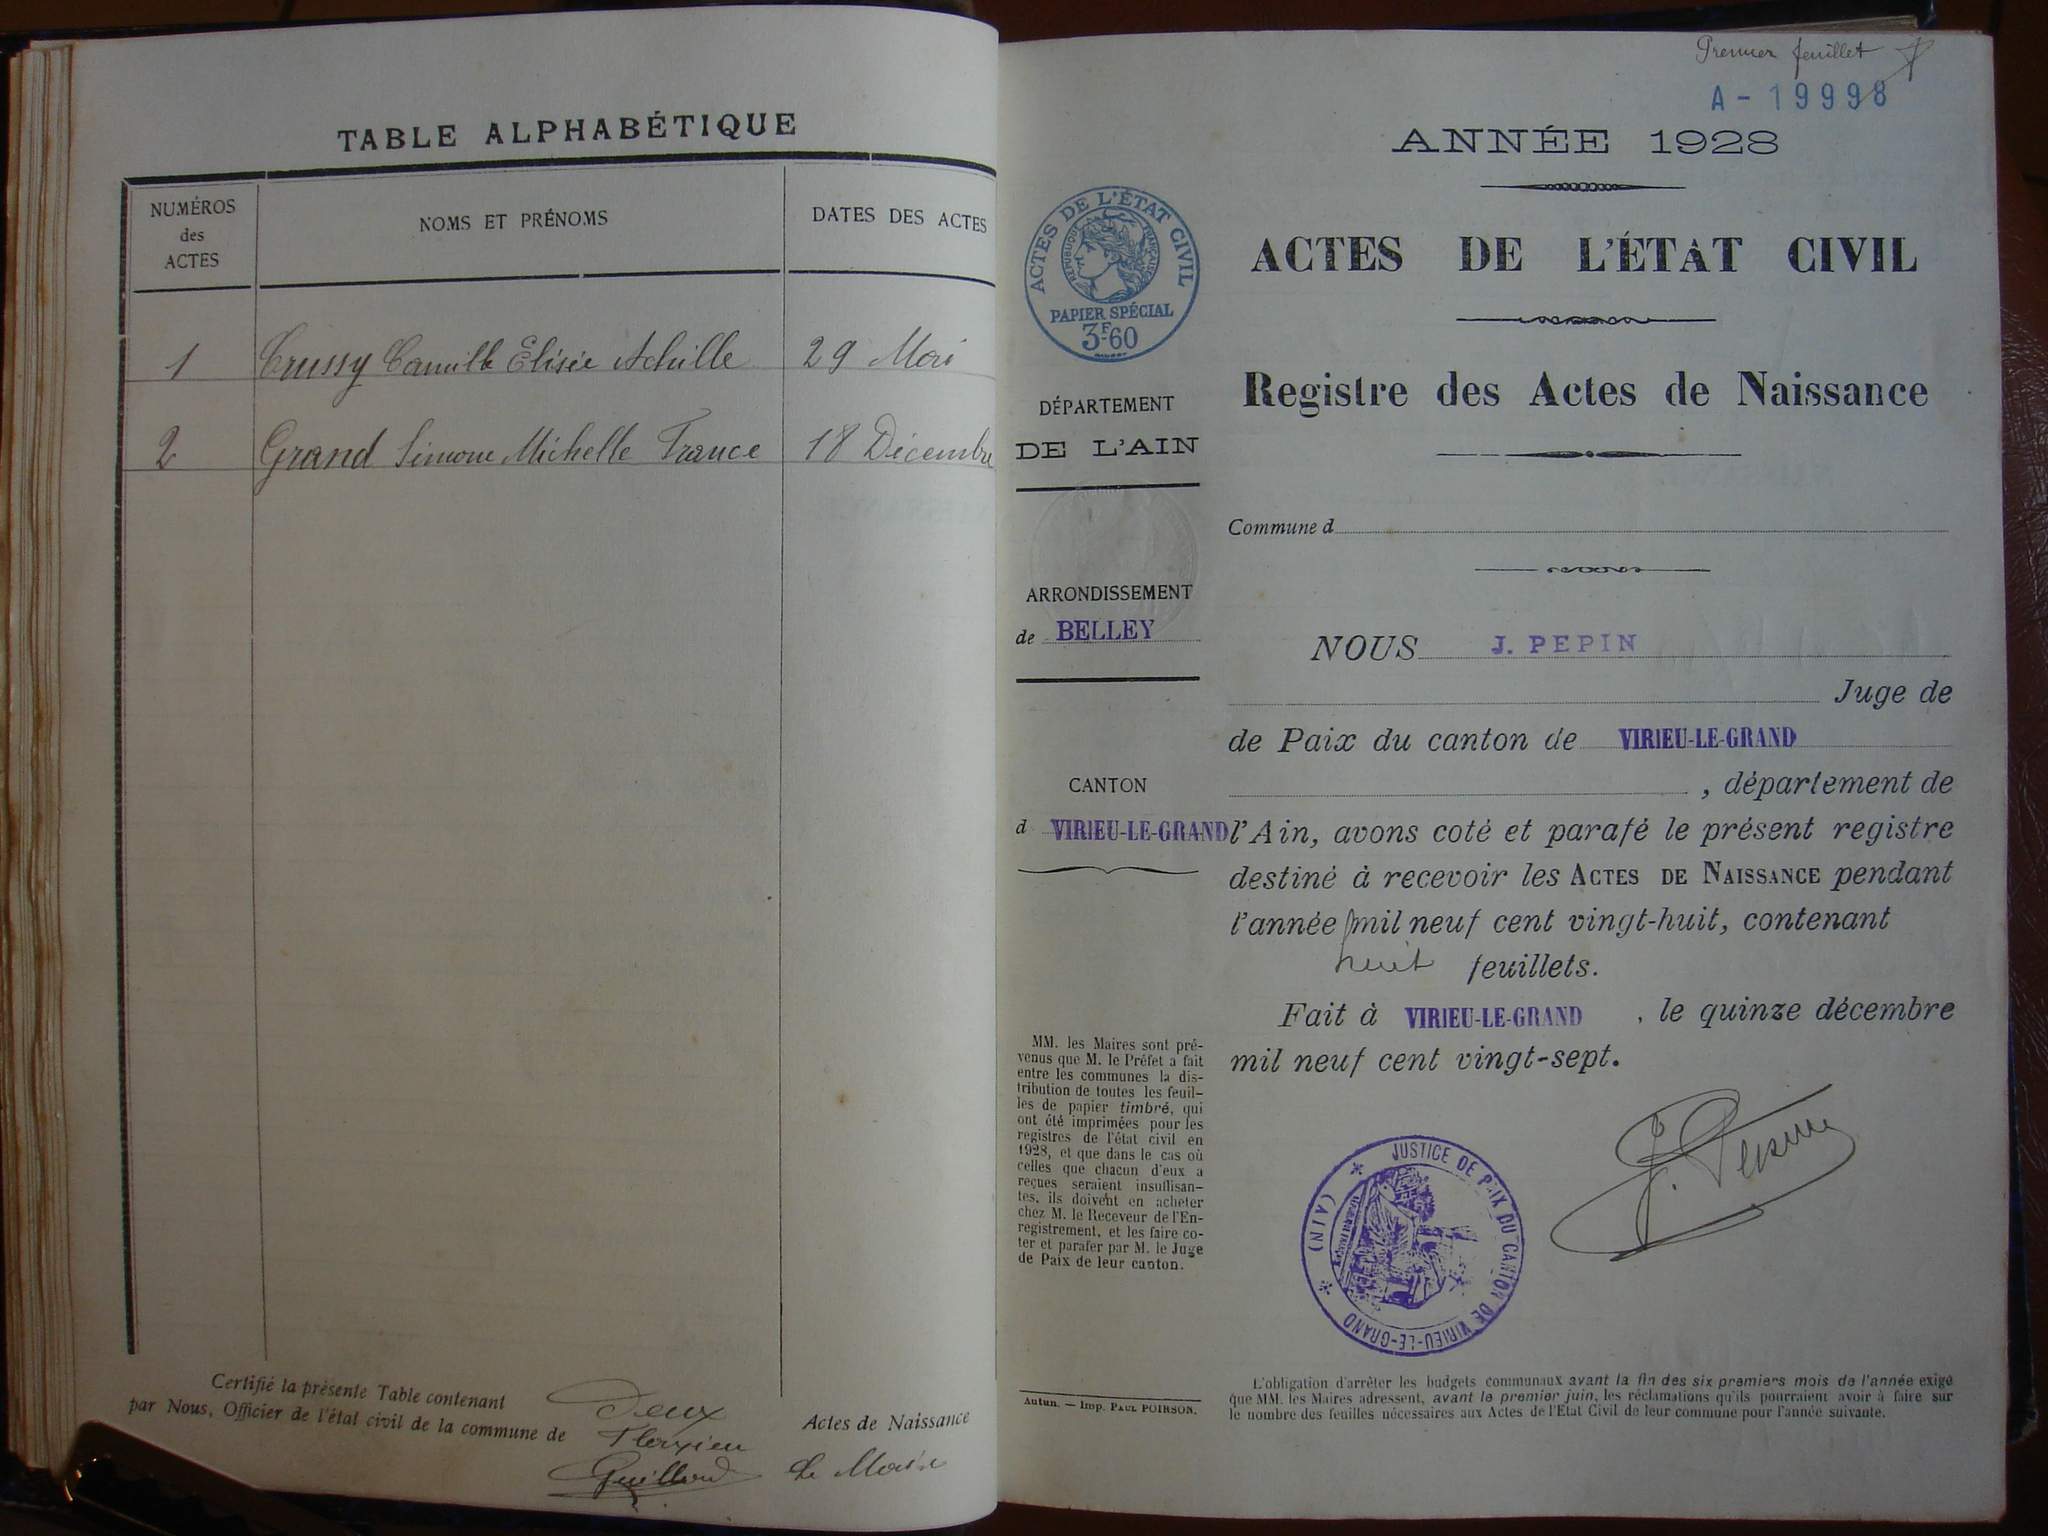 TABLE ALPHABÉTIQUE
NUMÉROS
des
ACTES
NOMS ET PRÉNOMS
DATES DES ACTES
1 Trussy Camille Elisée Achille 29 Mai
2 Grand Simone Michelle France 18 Décembre
Certifié la présente Table contenant Deux Actes de Naissance
par Nous, Officier de l'état civil de la commune de Flaxieu
Guillond Le Maire
Premier feuillet
A - 19998
ANNÉE 1928
ACTES DE L'ÉTAT CIVIL
RÉPUBLIQUE FRANÇAISE
PAPIER SPÉCIAL
3F60
DÉPARTEMENT
DE L'AIN
ARRONDISSEMENT
de BELLEY
CANTON
d VIRIEU-LE-GRAND
MM. les Maires sont pré-
venus que M. le Préfet a fait
entre les communes la dis-
tribution de toutes les feuil-
les de papier timbré, qui
ont été imprimées pour les
registres de l'état civil en
1928, et que dans le cas où
celles que chacun d'eux a
reçues seraient insuffisan-
tes, ils doivent en acheter
chez M. le Receveur de l'En-
registrement, et les faire co-
ter et parafer par M. le Juge
de Paix de leur canton.
Autun. — Imp. PAUL POIRSON.
ACTES DE L'ÉTAT CIVIL
Registre des Actes de Naissance
Commune d
NOUS J. PEPIN
Juge de
de Paix du canton de VIRIEU-LE-GRAND
, département de
l'Ain, avons coté et parafé le présent registre
destiné à recevoir les ACTES DE NAISSANCE pendant
l'année mil neuf cent vingt-huit, contenant
huit feuillets.
Fait à VIRIEU-LE-GRAND, le quinze décembre
mil neuf cent vingt-sept.
J. Pepin
JUSTICE DE PAIX DU CANTON DE VIRIEU-LE-GRAND
(AIN)
L'obligation d'arrêter les budgets communaux avant la fin des six premiers mois de l'année exige
que MM. les Maires adressent, avant le premier juin, les réclamations qu'ils pourraient avoir à faire sur
le nombre des feuilles nécessaires aux Actes de l'Etat Civil de leur commune pour l'année suivante.